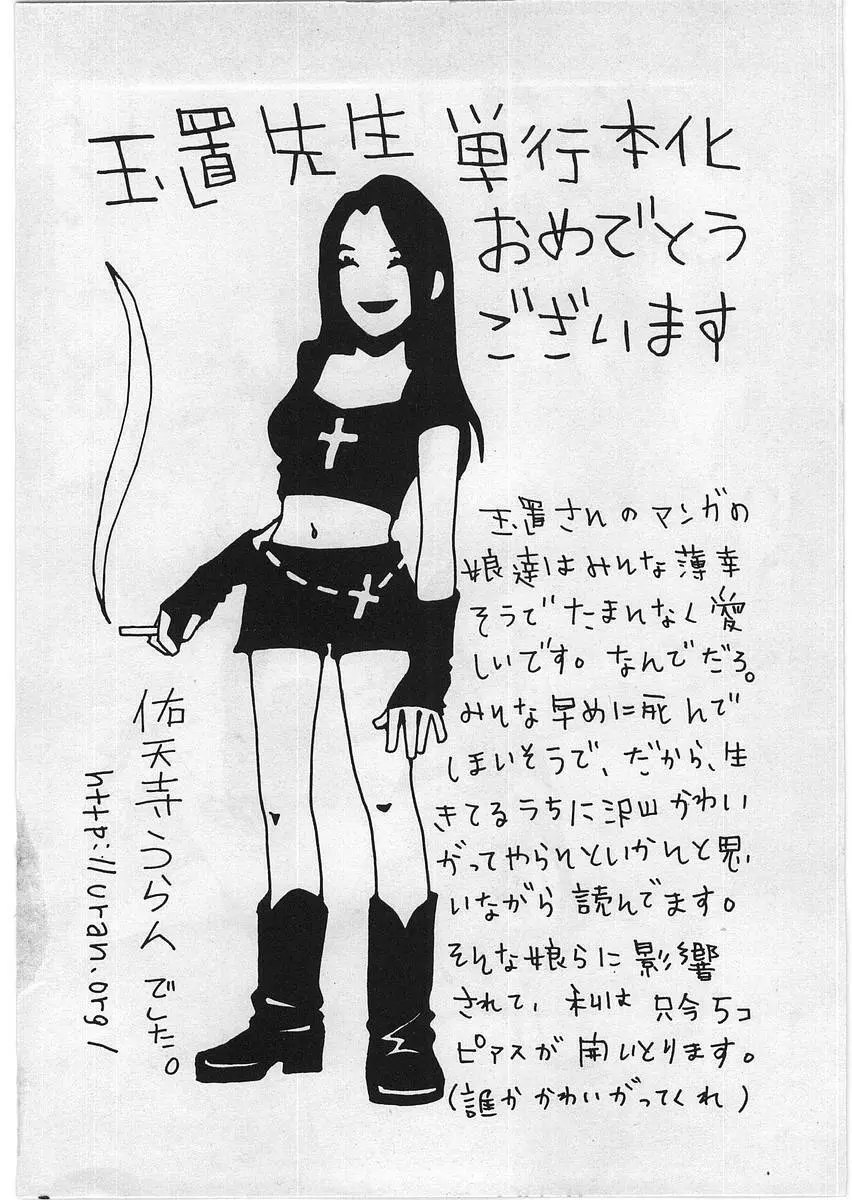 玉置先生 単行本化
おめでとう
ございます
玉置さんのマンガの
娘達はみんな薄幸
そうでたまんなく愛
しいです。なんでだろ。
みんな早めに死んで
しまいそうで、だから、生
きてるうちに沢山かわい
がってやらんといかんと思
いながら読んでます。
そんな娘らに影響
されて、私は只今5コ
ピアスが開いとります。
(誰かかわいがってくれ)
佑天寺うらんでした。
http://uran.org/